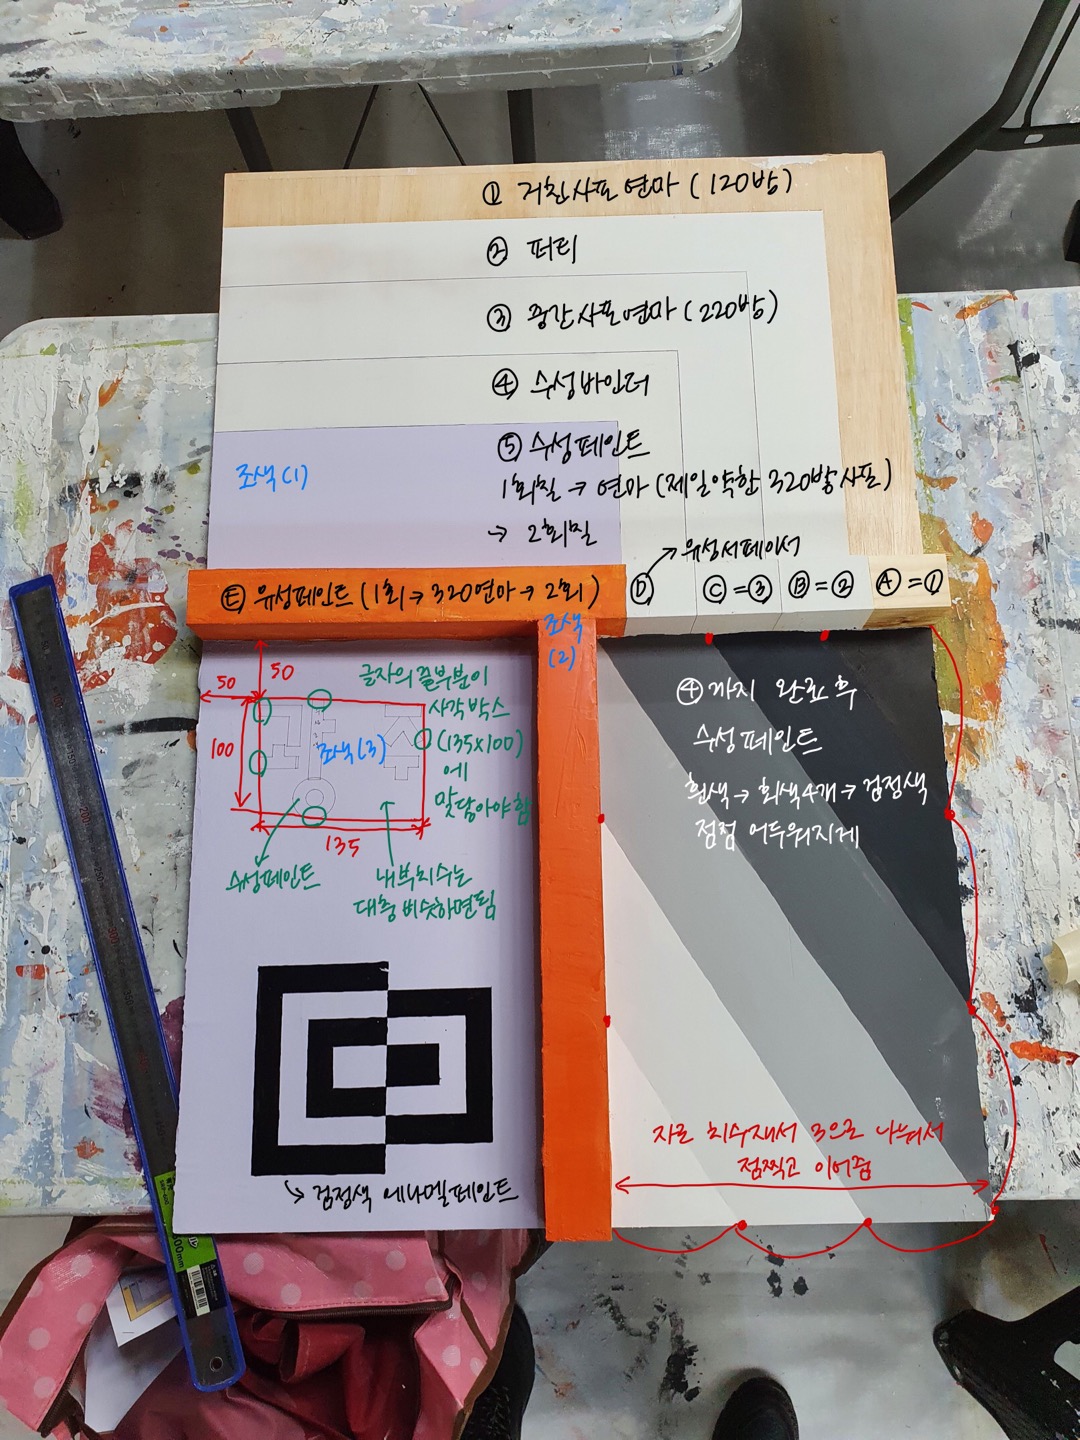 ① 거친사포연마 (120방)
② 퍼티
③ 중간사포연마 (220방)
④ 수성바인더
⑤ 수성페인트
1회칠 → 연마 (제일약한 320방사포)
→ 2회칠
조색(1)
→ 유성서페이서
Ⓔ 유성페인트 (1회→320연마→2회)
Ⓓ
Ⓒ=③ Ⓑ=② Ⓐ=①
조색
(2)
50
50
100
135
글자의 끝부분이
사각박스
(135x100)
에
맞닿아야함
조색(3)
수성페인트
내부치수는
대충 비슷하면됨
→ 검정색 에나멜페인트
④까지 완료후
수성페인트
흰색→회색4개→검정색
점점 어두워지게
자로 치수재서 3으로 나눠서
점찍고 이어줌